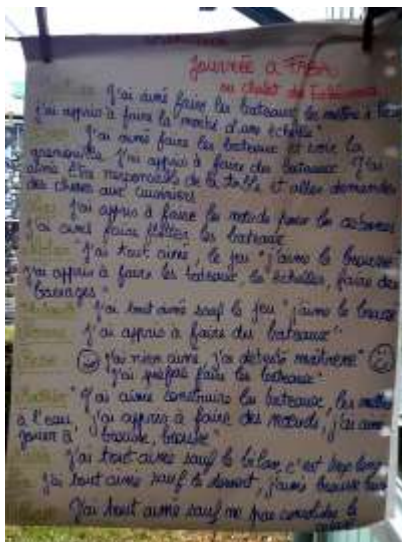 Journée à
au chalet de
"J'ai aimé faire les bateaux, les mettre à l'eau
j'ai appris à faire la moitié d'une échelle"
"J'ai aimé faire les bateaux et voir la
grenouille. J'ai appris à faire des bateaux. J'ai
aimé être responsable de la table et aller demander
des choses aux cuisiniers
J'ai appris à faire les nœuds pour les cabanes
j'ai aimé faire flotter les bateaux
"J'ai tout aimé, le jeu "j'aime la brousse"
j'ai appris à faire les bateaux, les échelles, faire des
barrages"
j'ai tout aimé sauf le jeu "j'aime la brousse
j'ai appris à faire des bateaux"
"J'ai rien aimé, j'ai détesté
J'ai préféré faire les bateaux"
"J'ai aimé construire les bateaux, les mettre
à l'eau, j'ai appris à faire des nœuds, j'ai aimé
jouer à brousse, brousse"
J'ai tout aimé sauf le bilan, c'est trop long
j'ai tout aimé sauf le dessert, j'aime brousse
J'ai tout aimé sauf ne pas construire la